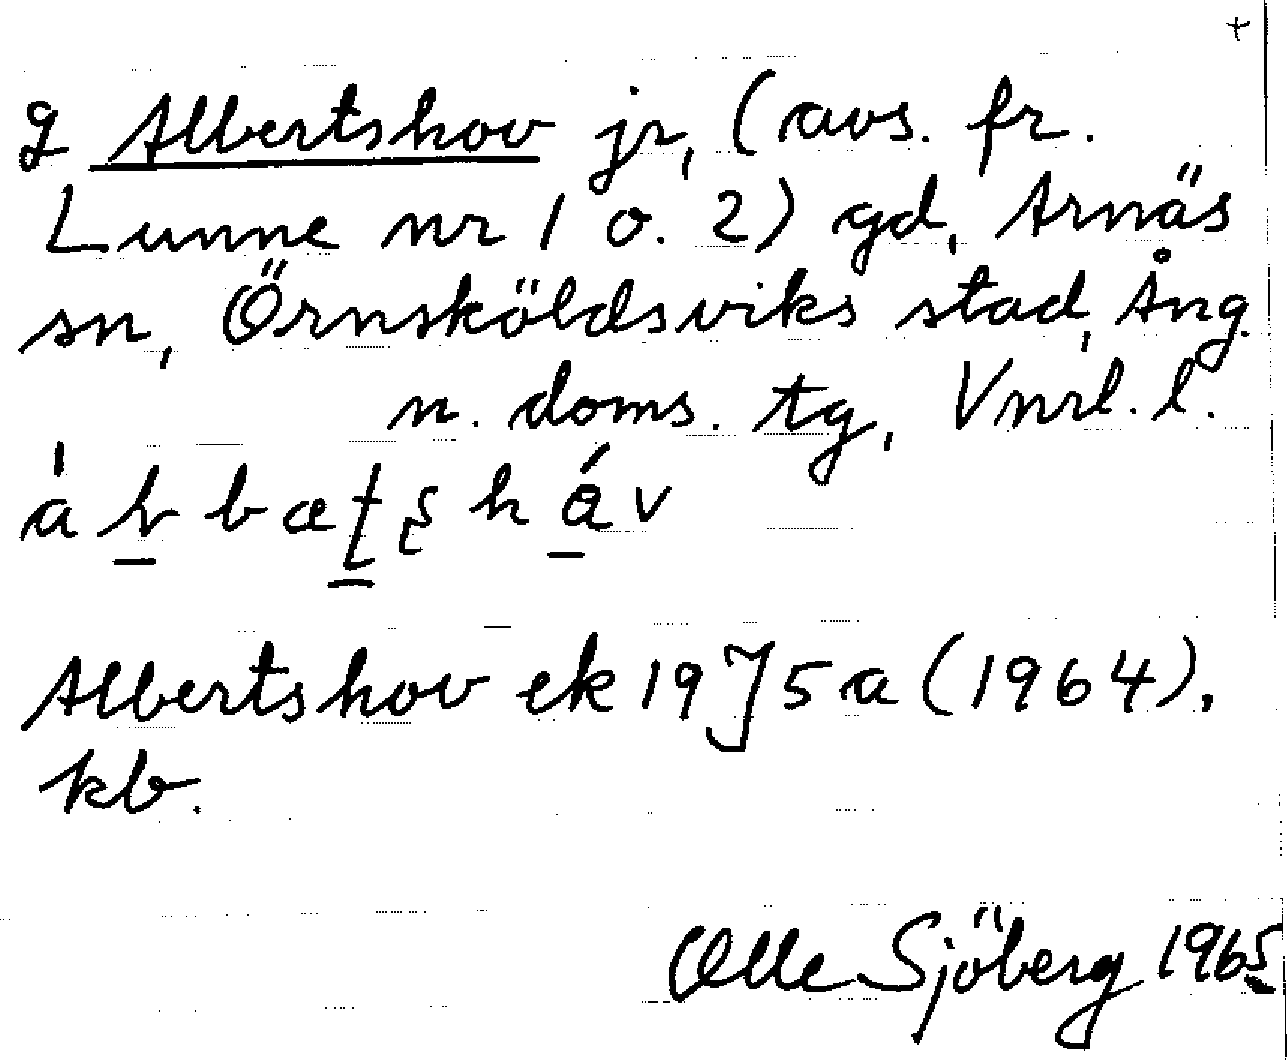 +
g Albertshov jr, (avs. fr.
Lunne nr 1 o. 2) gd, Arnäs
sn, Örnsköldsviks stad, Ång.
n. doms. tg, Vnrl. l.
Albertshov ek 19J5a (1964).
kb.
Olle Sjöberg 1965